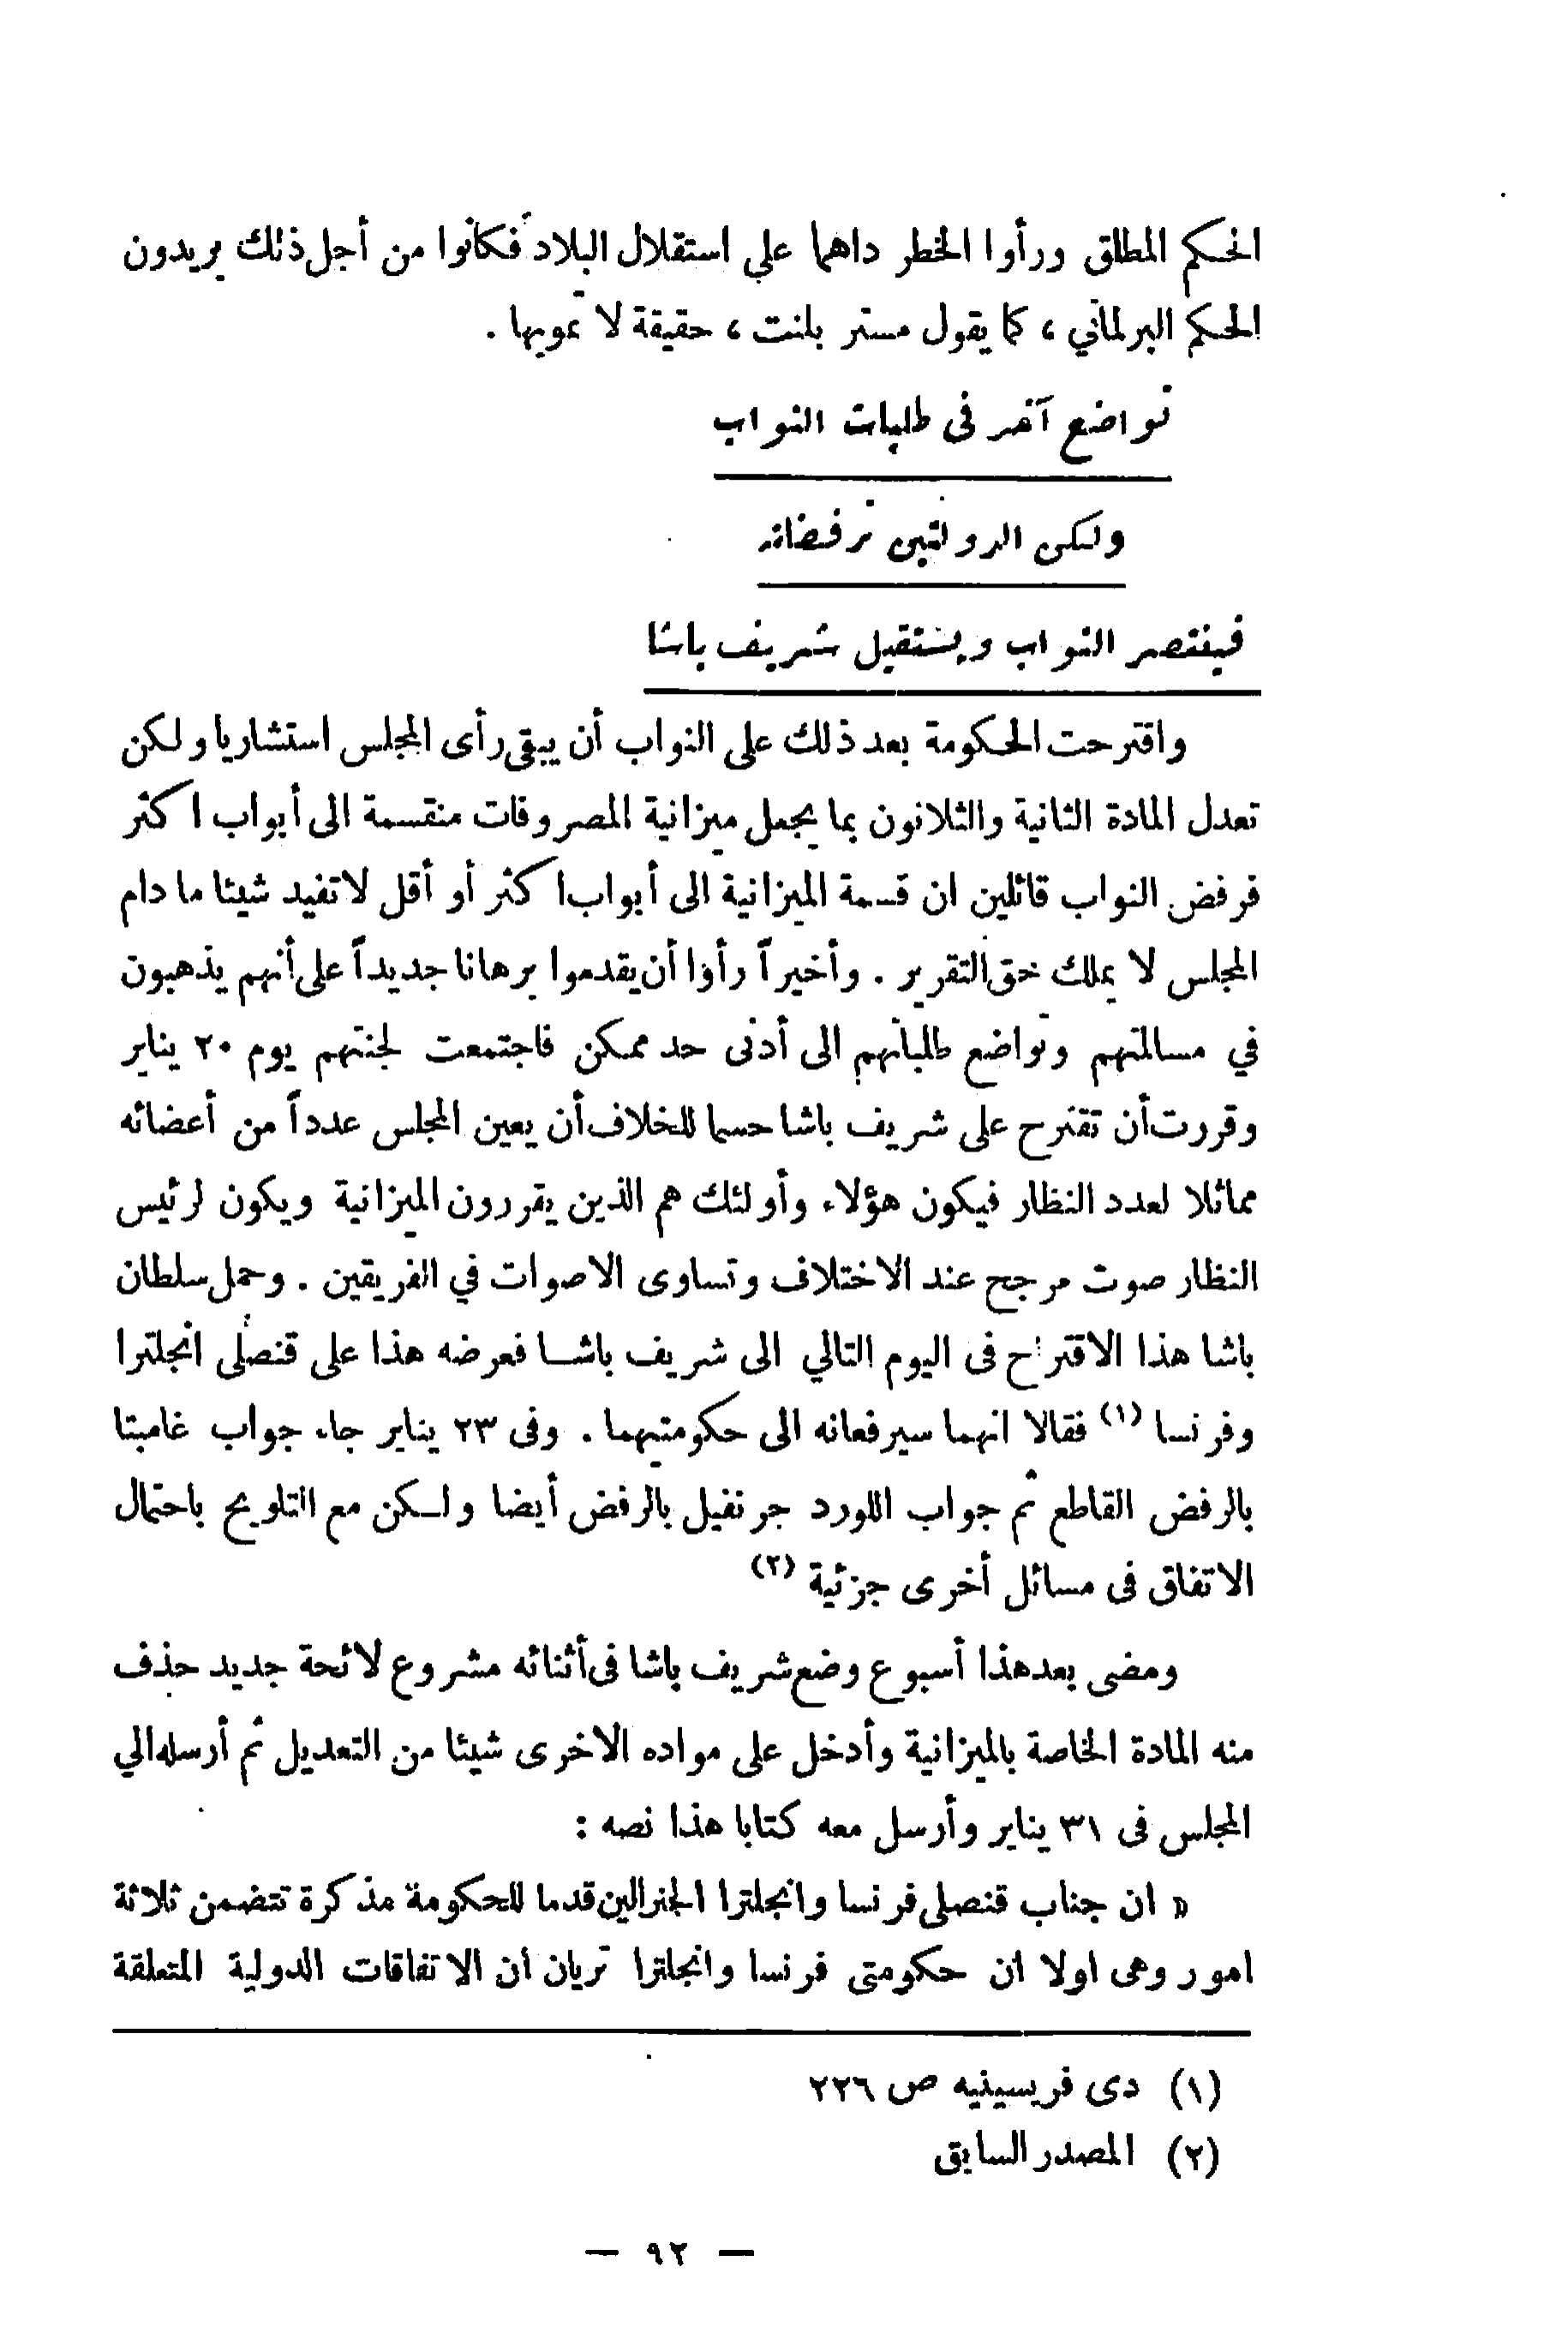 الحكم المطلق ورأوا الخطر داهما علي استقلال البلاد فكانوا من أجل ذلك يريدون
الحكم البرلماني ، كما يقول مستر بلنت ، حقيقة لا تمويها .
تواضع آخر في طلبات النواب
ولكن الدولتين ترفضانه
فينتصر النواب ويستقيل شريف باشا
واقترحت الحكومة بعد ذلك على النواب أن يبقى رأى المجلس استشاريا ولكن
تعدل المادة الثانية والثلاثون بما يجعل ميزانية المصروفات منقسمة الى أبواب اكثر
فرفض النواب قائلين ان قسمة الميزانية الى أبواب اكثر أو أقل لا تفيد شيئا ما دام
المجلس لا يملك حق التقرير . وأخيراً رأوا أن يقدموا برهانا جديداً على أنهم يذهبون
في مسالمتهم وتواضع طلباتهم الى أدنى حد ممكن فاجتمعت لجنتهم يوم ٢٠ يناير
وقررت أن تقترح على شريف باشا حسما للخلاف أن يعين المجلس عدداً من أعضائه
مماثلا لعدد النظار فيكون هؤلاء وأولئك هم الذين يقررون الميزانية ويكون لرئيس
النظار صوت مرجح عند الاختلاف وتساوى الاصوات في الفريقين . وحمل سلطان
باشا هذا الاقتراح فى اليوم التالي الى شريف باشا فعرضه هذا على قنصلى انجلترا
وفرنسا (١) فقالا انهما سيرفعانه الى حكومتيهما . وفى ٢٣ يناير جاء جواب غامبتا
بالرفض القاطع ثم جواب اللورد جرنفيل بالرفض أيضا ولكن مع التلويح باحتمال
الاتفاق فى مسائل أخرى جزئية (٢)
ومضى بعد هذا أسبوع وضع شريف باشا فى أثنائه مشروع لائحة جديد حذف
منه المادة الخاصة بالميزانية وأدخل على مواده الاخرى شيئا من التعديل ثم أرسله الي
المجلس فى ٣١ يناير وأرسل معه كتابا هذا نصه :
« ان جناب قنصلى فرنسا وانجلترا الجنرالين قدما للحكومة مذكرة تتضمن ثلاثة
امور وهى اولا ان حكومتى فرنسا وانجلترا تريان ان الاتفاقات الدولية المتعلقة
(١) دى فريسينيه ص ٢٢٦
(٢) المصدر السابق
— ٩٢ —